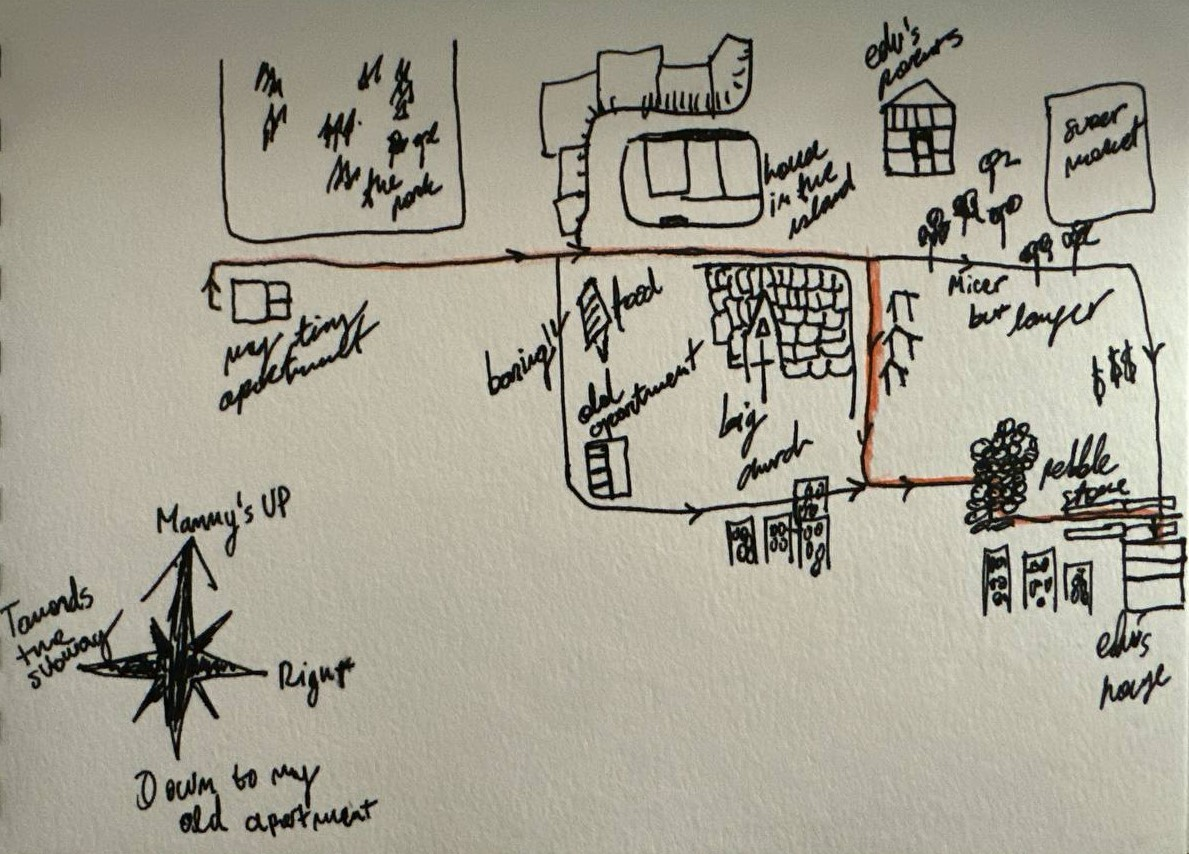 edu's
parents
super
market
the
park
house
in the
island
my tiny
apartment
food
boring!!
old
apartment
big
church
Nicer
but longer
$ $ $
pebble
stone
edu's
house
Mammy's UP
Towards
the
subway
Right
Down to my
old apartment